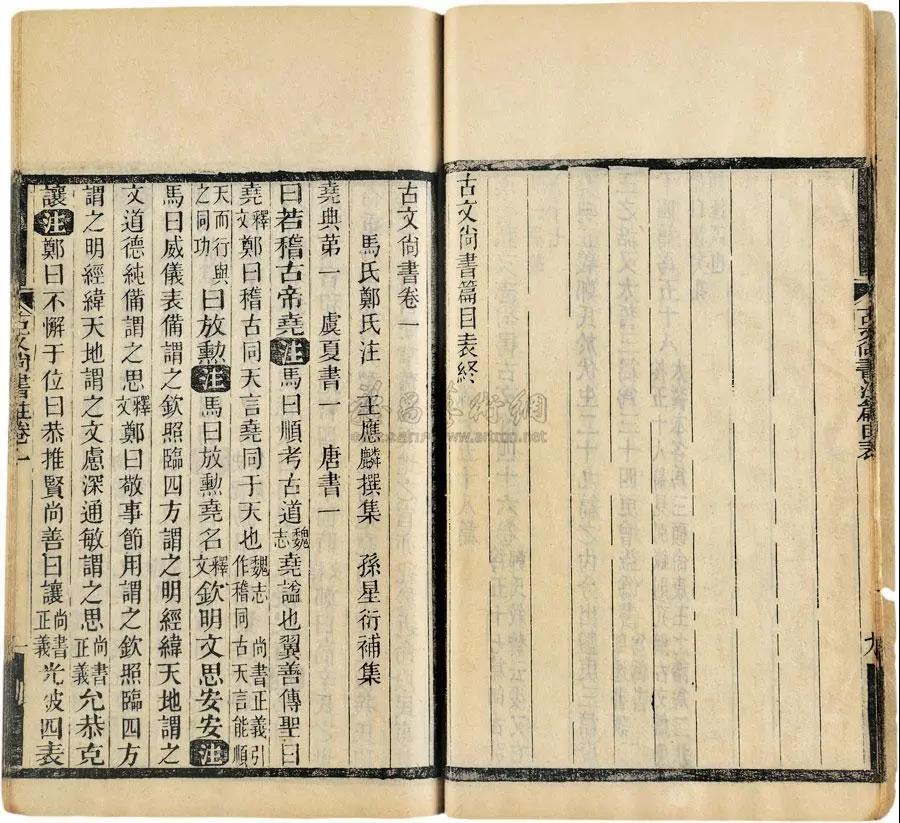 古文尚書篇目表終
古文尚書卷一
馬氏鄭氏注 王應麟撰集 孫星衍補集
堯典第一 虞夏書一 唐書一
曰若稽古帝堯注馬曰順考古道魏志堯謚也翼善傳聖曰
堯釋文鄭曰稽古同天言堯同于天也魏志作稽同尚書正義引古天言能順
天而行與之同功曰放勳注馬曰放勳堯名釋文欽明文思安安注
馬曰威儀表備謂之欽照臨四方謂之明經緯天地謂之
文道德純備謂之思釋文鄭曰敬事節用謂之欽照臨四方
謂之明經緯天地謂之文慮深通敏謂之思尚書正義允恭克
讓注鄭曰不懈于位曰恭推賢尚善曰讓尚書正義光被四表
古文尚書註卷一
一
雅昌藝術網
www.artron.net